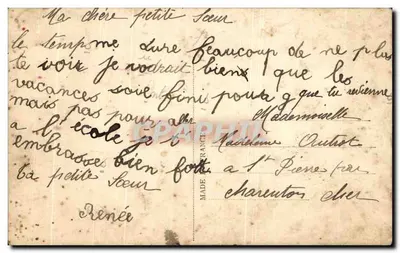 Ma chère petite Sœur
le temp me dure beaucoup de ne plus
te voir je vodrait bien que les
vacances soie fini pour q que tu revienne
mais pas pour alle
a l'école je t
embrasse bien fort
ta petite Sœur
Renée
Mademoiselle
Madeleine
a St Pierre
Charenton Cher
MADE
CPARAMA